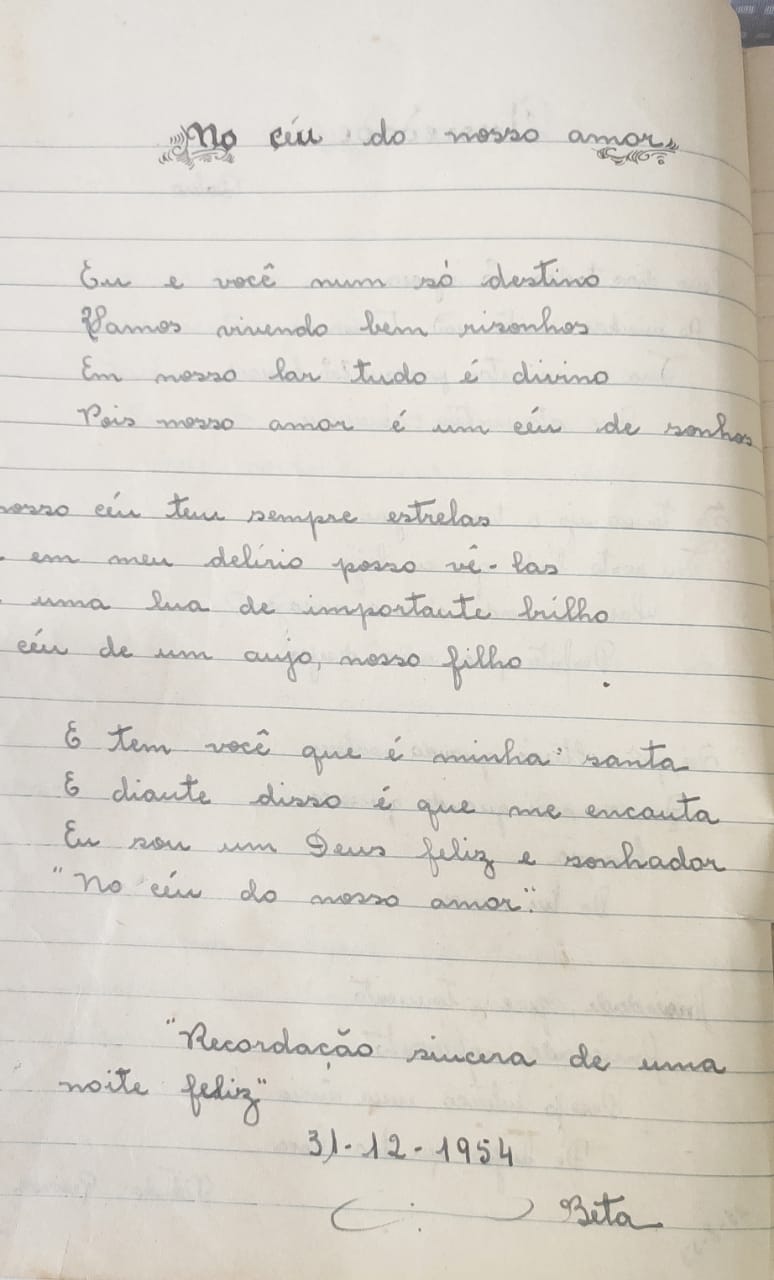 No céu do nosso amor
Eu e você num só destino
Vamos vivendo bem risonhos
Em nosso lar tudo é divino
Pois nosso amor é um céu de sonhos
nosso céu tem sempre estrelas
em meu delírio posso vê-las
uma lua de importante brilho
céu de um anjo, nosso filho
E tem você que é minha santa
E diante disso é que me encanta
Eu sou um Deus feliz e sonhador
"No céu do nosso amor".
"Recordação sincera de uma
noite feliz"
31-12-1954
Beta